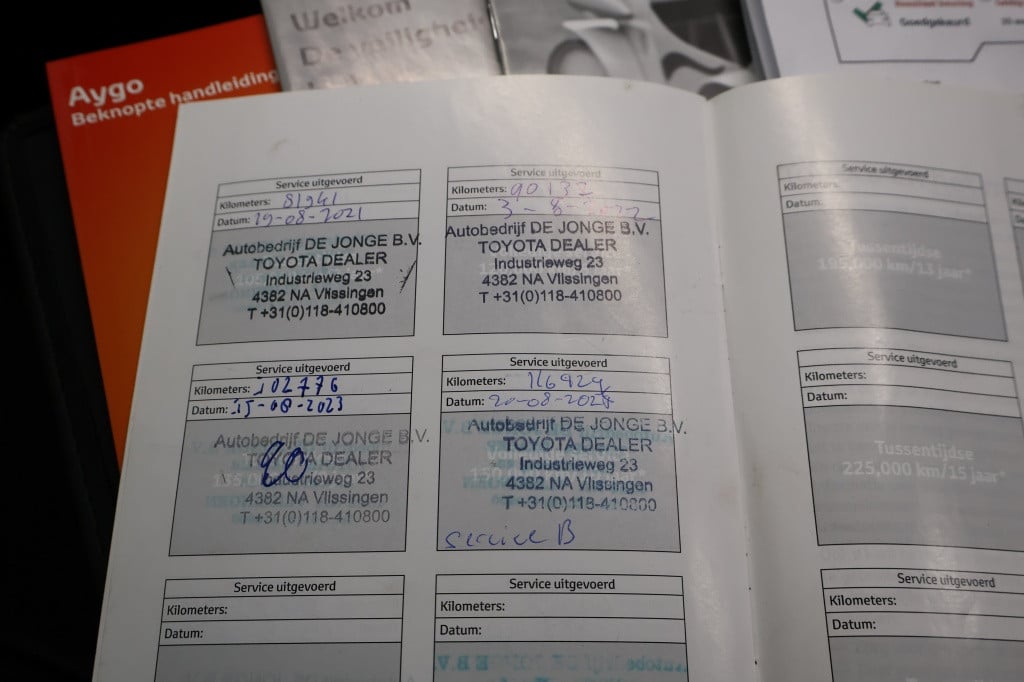 Aygo
Beknopte handleiding
Welkom
Goedgekeurd
Service uitgevoerd
Kilometers: 81941
Datum: 19-08-2021
Autobedrijf DE JONGE B.V.
TOYOTA DEALER
Industrieweg 23
4382 NA Vlissingen
T +31(0)118-410800
Service uitgevoerd
Kilometers: 90137
Datum:
Autobedrijf DE JONGE B.V.
TOYOTA DEALER
Industrieweg 23
4382 NA Vlissingen
T +31(0)118-410800
Service uitgevoerd
Kilometers:
Datum:
Tussentijdse
195,000 km/13 jaar*
Service uitgevoerd
Kilometers: 102776
Datum: 15-08-2023
Autobedrijf DE JONGE B.V.
TOYOTA DEALER
Industrieweg 23
4382 NA Vlissingen
T +31(0)118-410800
Service uitgevoerd
Kilometers:
Datum: 20-08-2024
Autobedrijf DE JONGE B.V.
TOYOTA DEALER
Industrieweg 23
4382 NA Vlissingen
T +31(0)118-410800
service B
Service uitgevoerd
Kilometers:
Datum:
Tussentijdse
225,000 km/15 jaar*
Service uitgevoerd
Kilometers:
Datum:
Service uitgevoerd
Kilometers:
Datum:
Service uitgevoerd
Kilometers:
Datum: